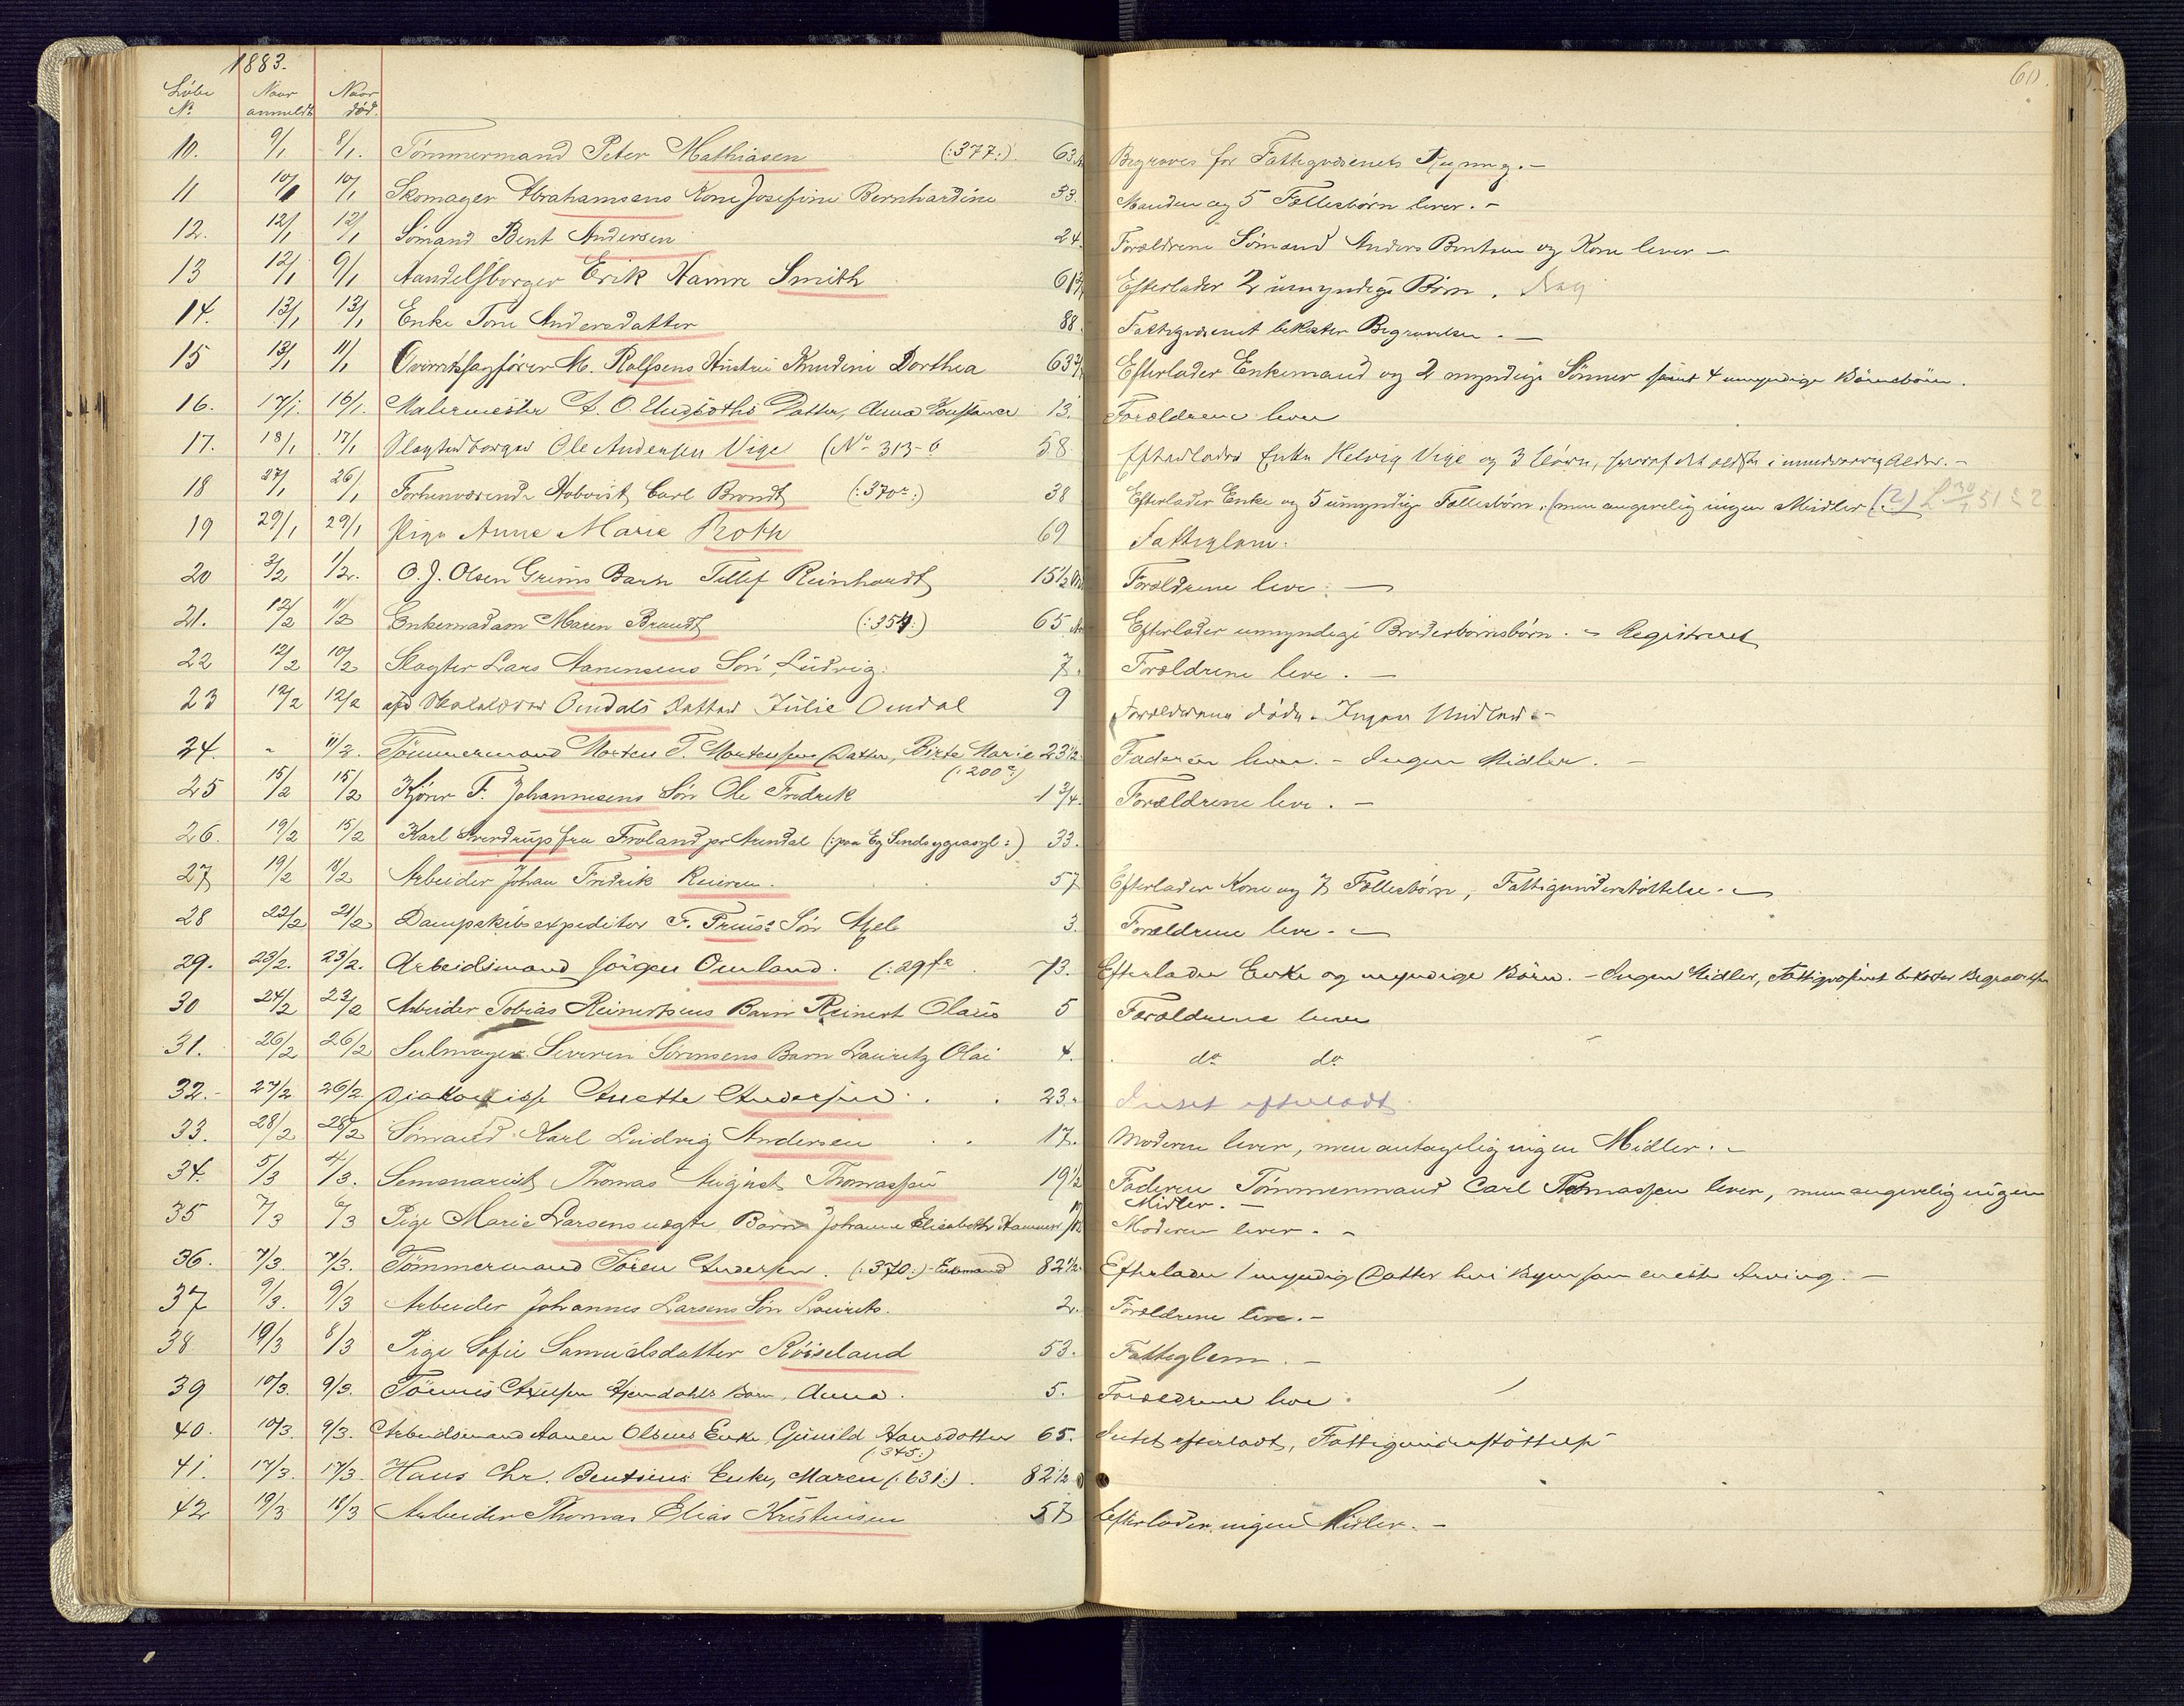 1883.
60.
Løbe No. Naar anmeldt Naar død.
10. 9/1 8/1. Tømmermand Peter Mathiasen (:377:). 63 Begraves for Fattigvæsenets Regning.-
11 10/1 10/1 Skomager Abrahamsens Kone Josefine Bernhardine 33. Manden og 5 Fællesbørn lever.-
12. 12/1 12/1 Sømand Bent Andersen 24. Forældrene Sømand Anders Bentsen og Kone lever -
13 12/1 9/1 Handelsborger Erik Hamre Smith Efterlader 2 umyndige Børn.
14. 13/1 13/1 Enke Tone Andersdatter 88. Fattigvæsenet bekoster Begravelsen.-
15 13/1 11/1 Overretssagfører M. Rolfsens Hustru Knudine Dorthea Efterlader Enkemand og 2 myndige Sønner samt 4 umyndige Børnebørn.
16. 17/1. 16/1. Malermester A. O. Datter, Anna Constance 13. Forældrene lever
17. 18/1 17/1 Slagterborger Ole Andersen Vige (No 313-b 58 Efterlader Enke Helvig Vige og 3 Børn, hvoraf det ældste i mindreaarig Alder.-
18 27/1 26/1 Forhenværende Hoboist Carl Brandt (:370a:) 38 Efterlader Enke og 5 umyndige Fællesbørn, (men angivelig ingen Midler (?)
19 29/1 29/1 Pige Anne Marie Roth 69 Fattiglem.
20 3/2 1/2. O. J. Olsen Grims Barn Tellef Reinhardt 15½ Forældrene leve. -
21. 12/2 11/2 Enkemadam Maren Brandt 65 Efterlader umyndige Broderbørnsbørn. - Registreret
22 12/2 10/2 Slagter Lars Hanensens Søn, Ludvig. 7. Forældrene leve. -
23 12/2 12/2 afd Omdals Datter Julie Omdal 9 Forældrene døde. Ingen Midler.-
24. " 11/2. Tømmermand Morten T. Mortensens Datter, Birte Marie 23½ Faderen lever. - Ingen Midler. -
25 15/2 15/2 Kjører F. Johannesens Søn Ole Fredrik (:200a:) 1¾. Forældrene leve. -
26. 19/2 15/2 Karl Sverdrup fra Froland pr Arendal (:paa Eg Sindsygeasyl:) 33.
27 19/2 18/2 Arbeider Johan Fredrik Reiersen. 57 Efterlader Kone og 7 Fællesbørn, Fattigunderstøttelse.-
28 22/2 21/2 Dampskibsexpeditør F. Friis's Søn Axel 3. Forældrene leve.-
29. 23/2. 23/2. Arbeidsmand Jørgen Omland. 73. Efterlader Enke og myndige Børn.- Ingen Midler, Fattigvæsenet bekoster Begravelsen
30 24/2 23/2 Arbeider Tobias Reinertsens Barn Reinert Olaus 5 Forældrene lever
31. 26/2 26/2 Seilmager Severin Sørensens Barn Lauritz Olai 4. do do
32.- 27/2 26/2. Diakonisse Anette Andersen. 23. Intet efterladt.
33. 28/2 28/2 Sømand Karl Ludvig Andersen 17. Moderen lever, men antagelig ingen Midler.-
34. 5/3 4/3. Semenarist Thomas August Thomassen 19½ Faderen Tømmermand Carl Thomassen lever, men angivelig ingen Midler.-
35 7/3 6/3 Pige Marie Larsens uægte Barn Johanne Elisabeth Moderen lever.-
36. 7/3. 7/3. Tømmermand Søren Andersen. (:370:)-Enkemand 82½ Efterlader 1 myndig Datter her i Byen som eneste Arving.-
37 9/3. 9/3 Arbeider Johannes Larsens Søn Laurits. 2. Forældrene leve.-
38 19/3 8/3 Pige Sofie Samuelsdatter Røiseland 53. Fattiglem.-
39 10/3. 9/3. Tønnes Axelsen Barn, Anna. 5. Forældrene leve.
40. 10/3. 9/3. Arbeidsmand Hanen Olsens Enke Gunild Hansdatter (:345:) 65. Intet efterladt, Fattigunderstøttelse
41. 17/3. 17/3. Hans Chr. Bentsens Enke, Maren (:631:). 82½
42 19/3 18/3 Arbeider Thomas Elias Kristensen 57 Efterlader ingen Midler.-